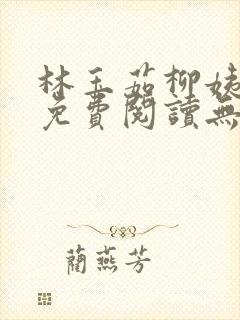 林玉茹柳姨
免費閱讀無
藺燕芳